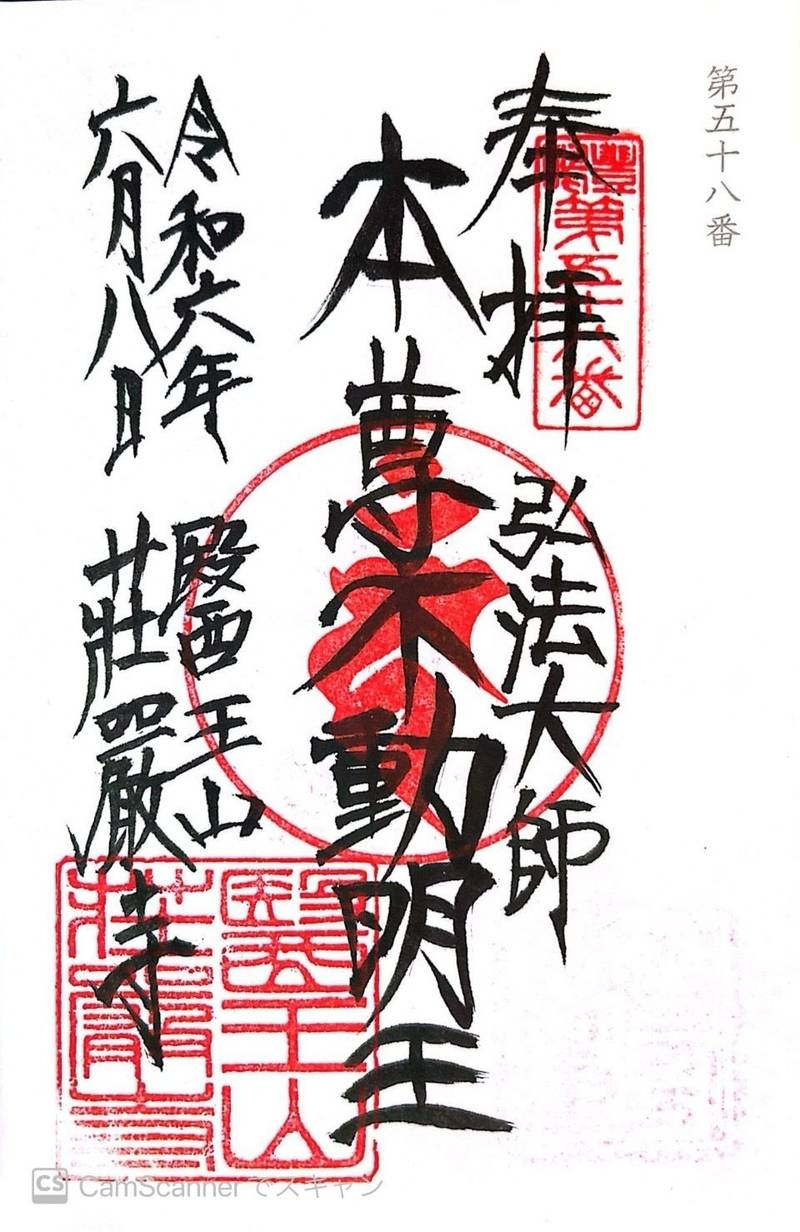 第五十八番
奉拝
弘法大師
本尊不動明王
令和六年
六月八日
醫王山
莊嚴寺
第五十八番
醫王山
莊嚴寺
CS CamScanner でスキャン